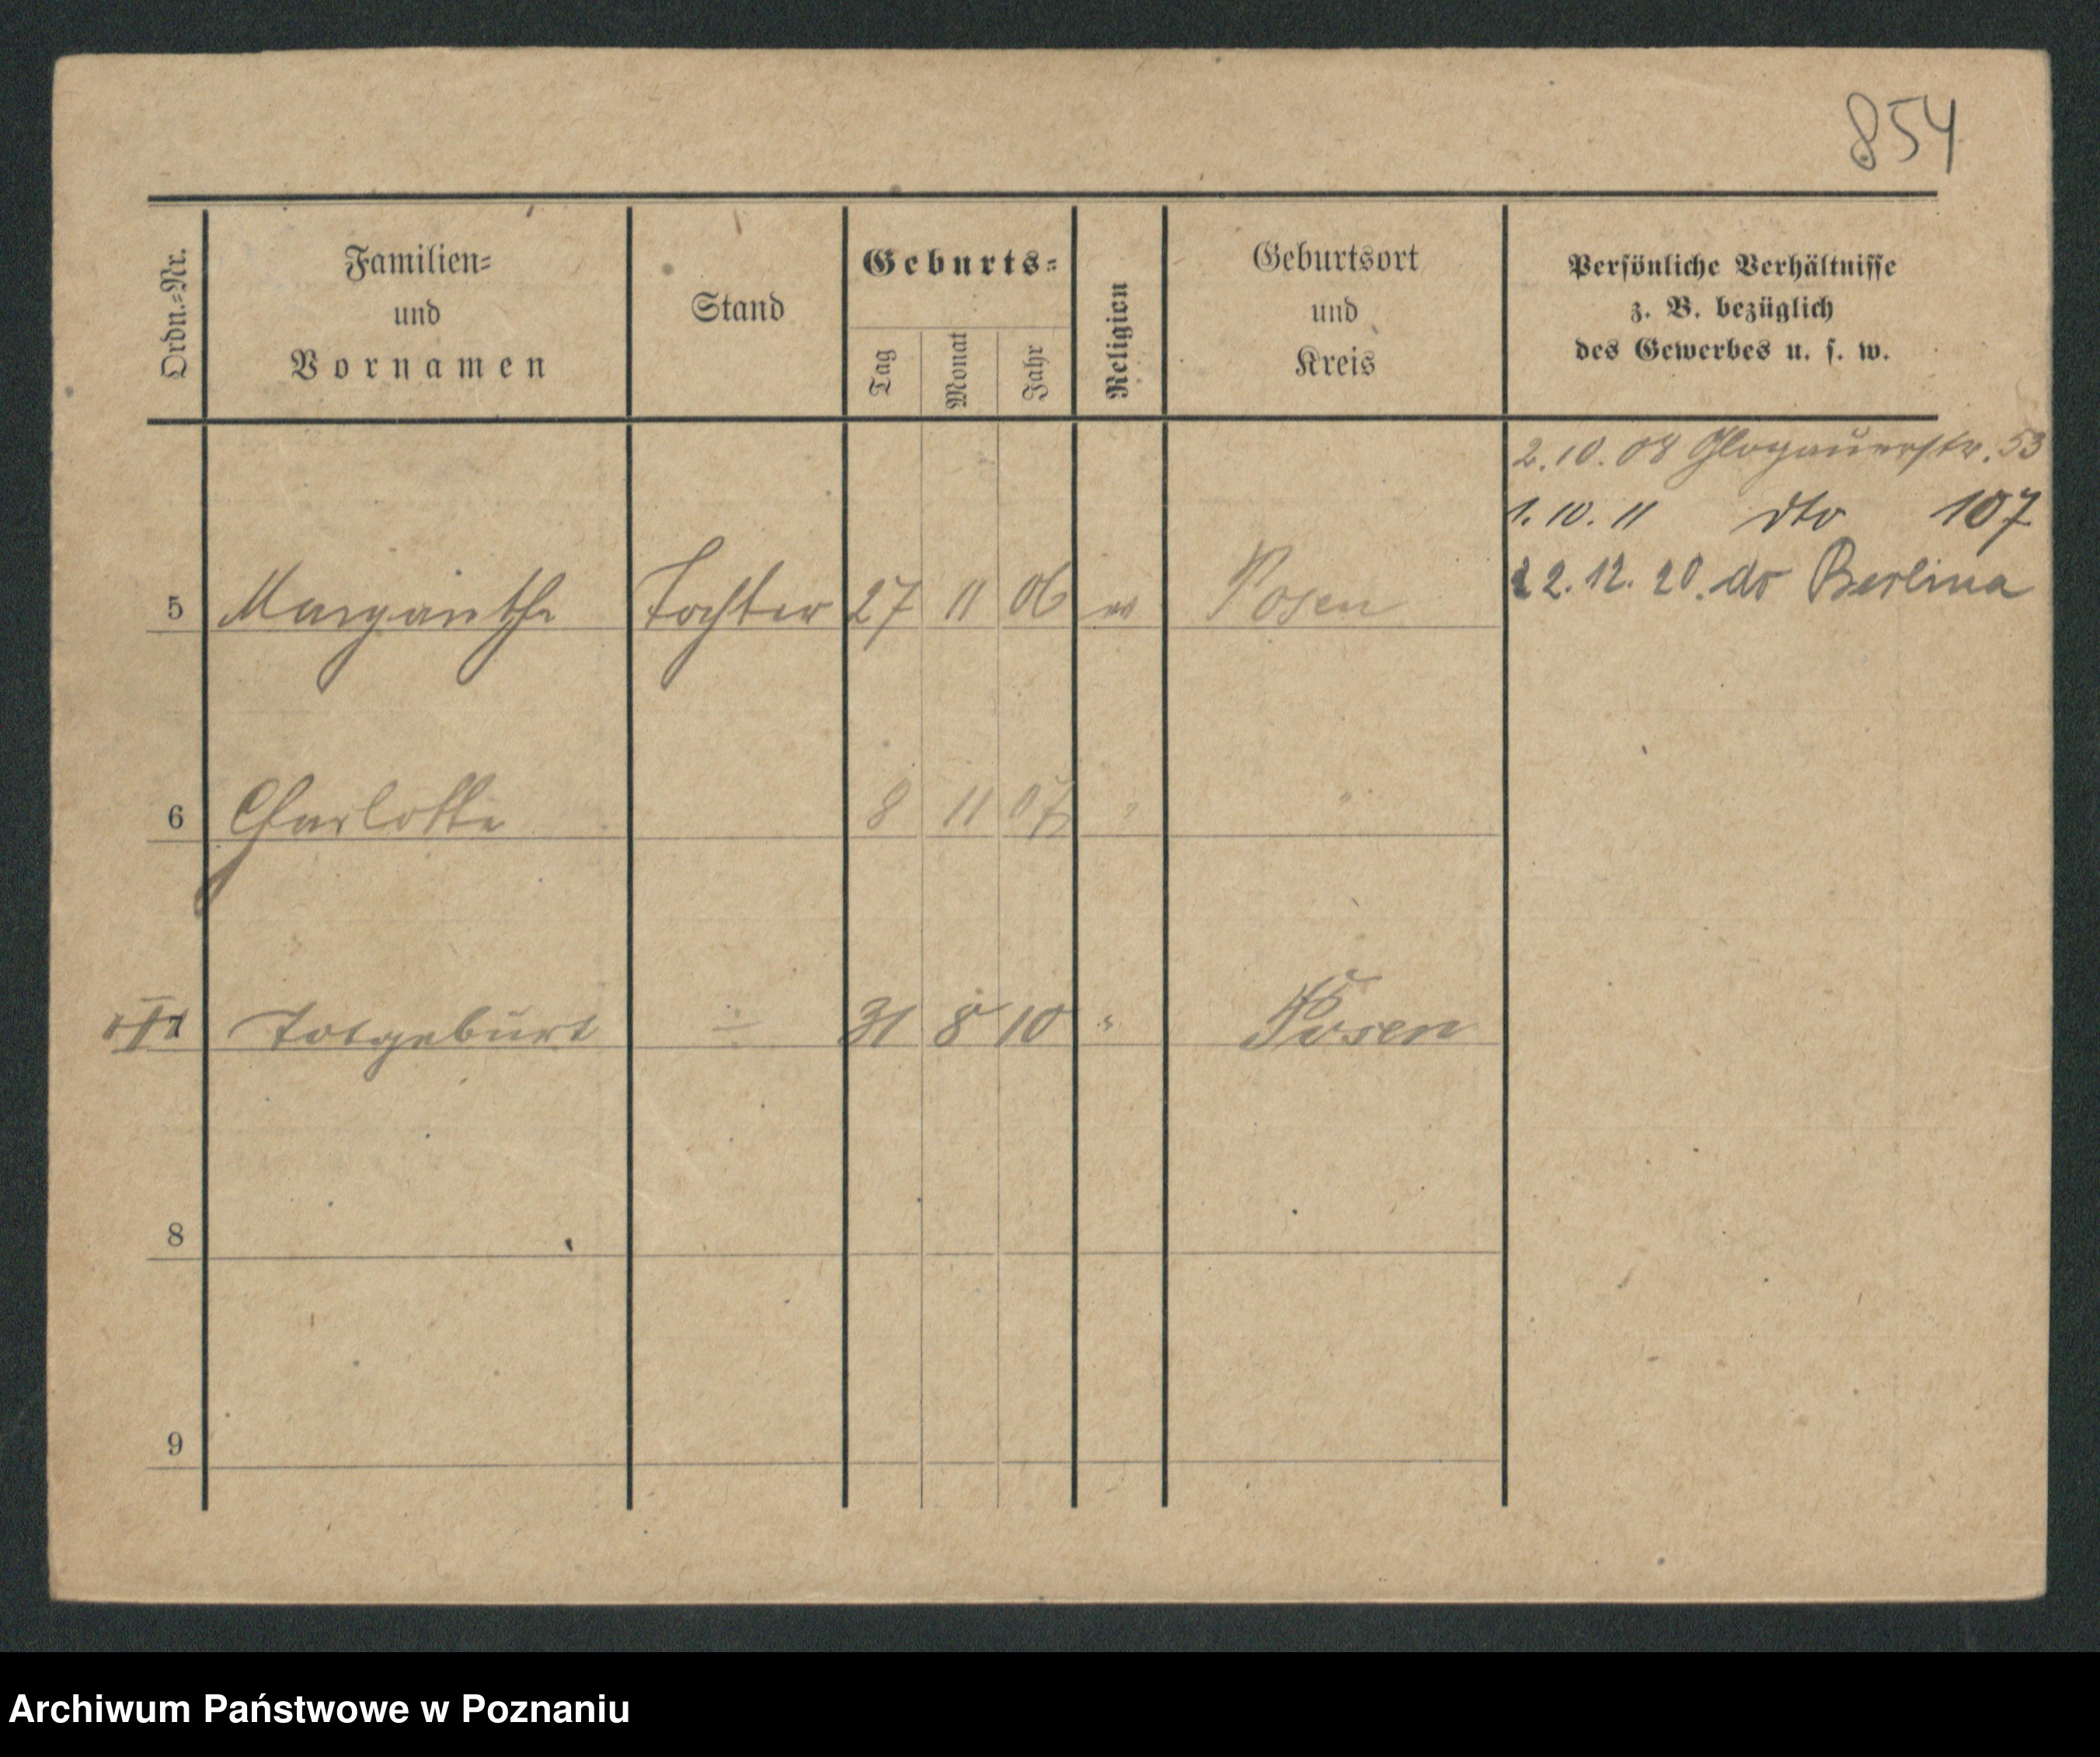 854
Ordn.=Nr.
Familien=
und
Vornamen
Stand
Geburts=
Tag
Monat
Jahr
Religion
Geburtsort
und
Kreis
Persönliche Verhältnisse
z. B. bezüglich
des Gewerbes u. s. w.
2.10.08 Glogauerstr. 53
1. 10. 11 dto 107
22. 12. 20. do Berlina
5 Margarethe Tochter 27 11 06 Posen
6 Charlotte 8 11 07 " "
7 Totgeburt ÷ 31 8 10 " Posen
8
9
Archiwum Państwowe w Poznaniu